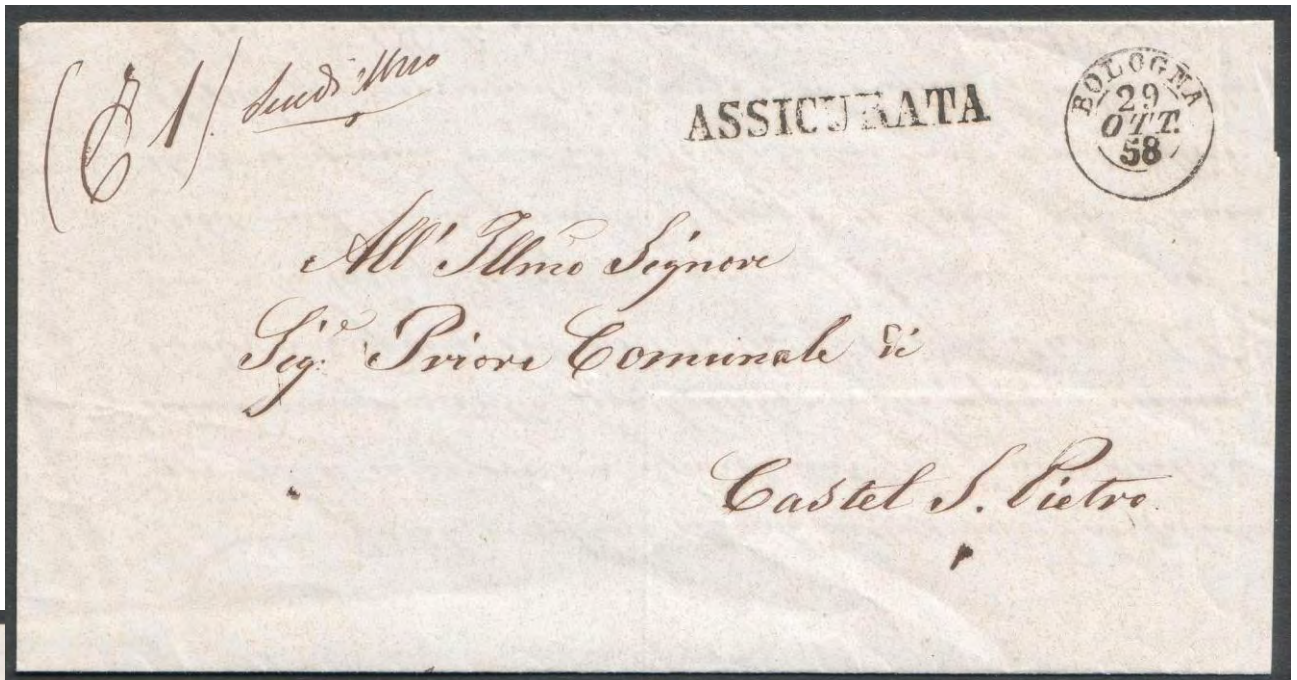 1
ASSICURATA
BOLOGNA
29
OTT.
58
All' Illmo Signore
Sig.e Priore Comunale di
Castel S. Pietro